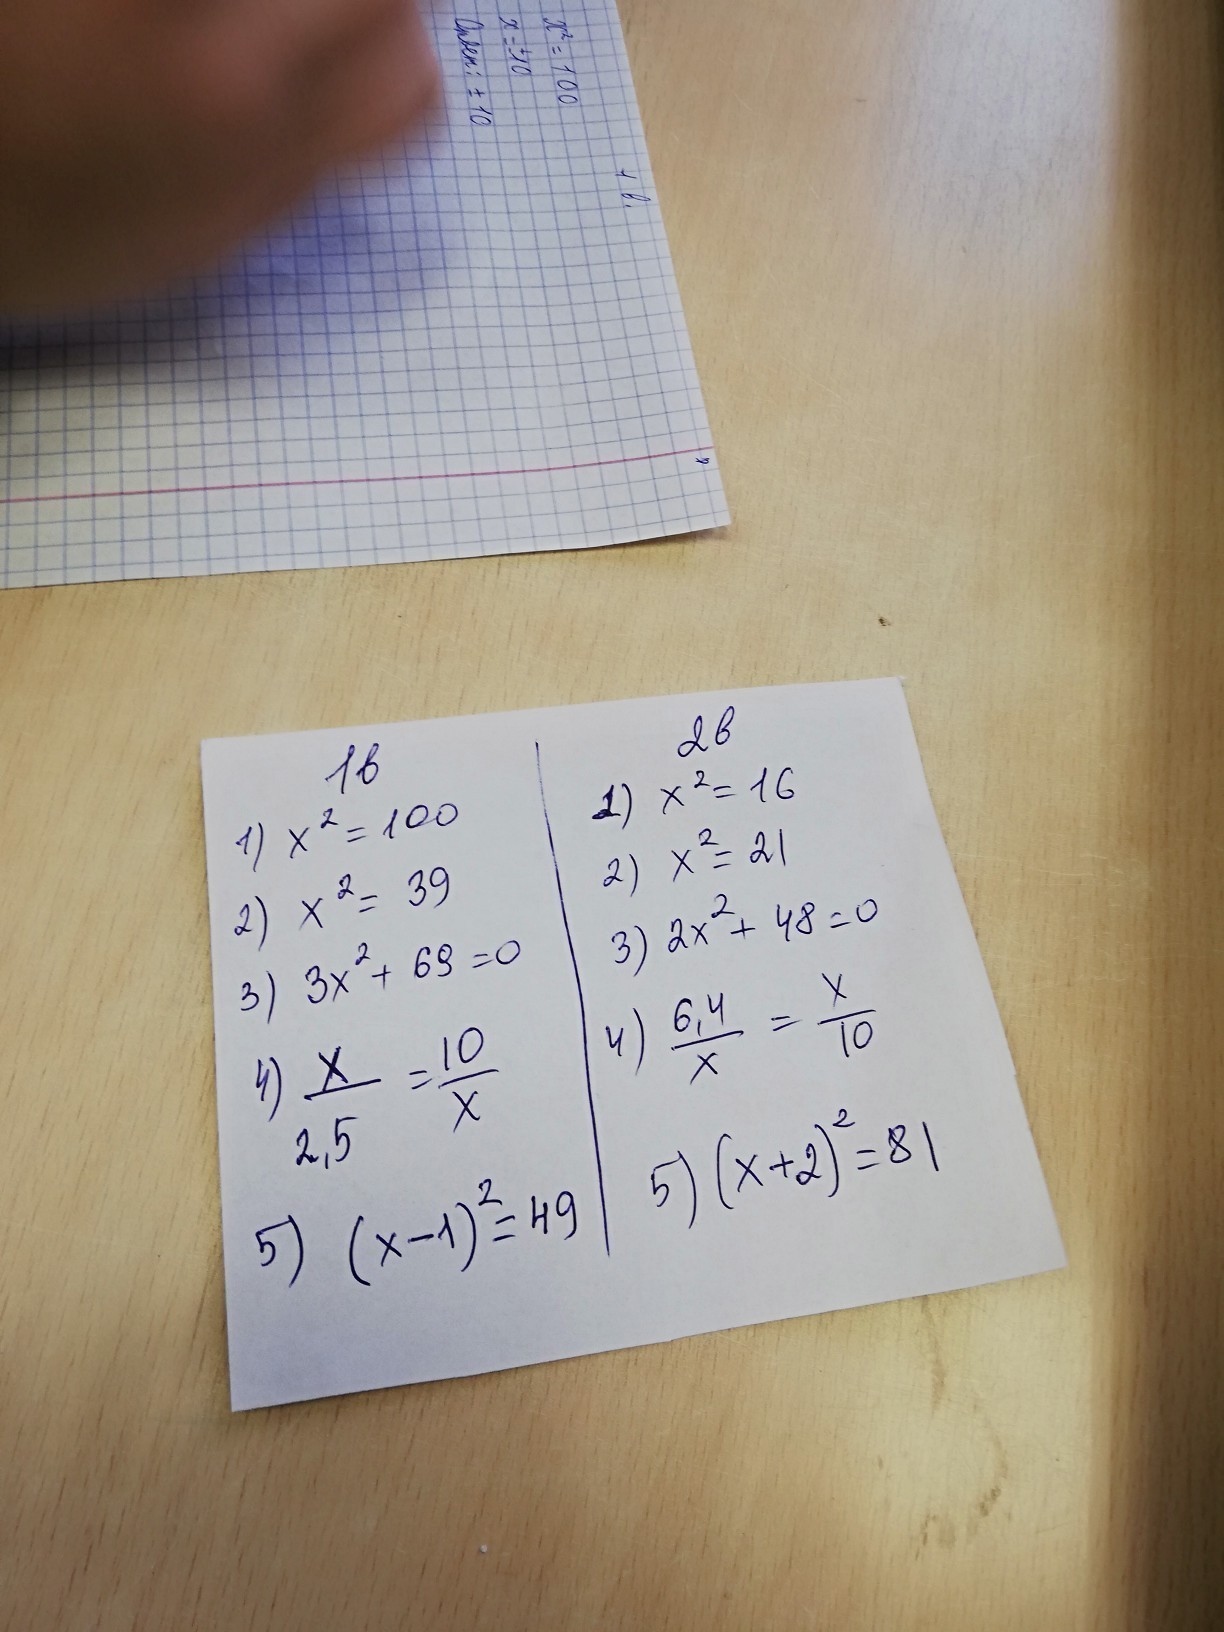 x² = 100
x = ±10
Ответ: ± 10
1 в.
1в
1) x² = 100
2) x² = 39
3) 3x² + 69 = 0
4) x/2,5 = 10/x
5) (x-1)² = 49
2в
1) x² = 16
2) x² = 21
3) 2x² + 48 = 0
4) 6,4/x = x/10
5) (x+2)² = 81